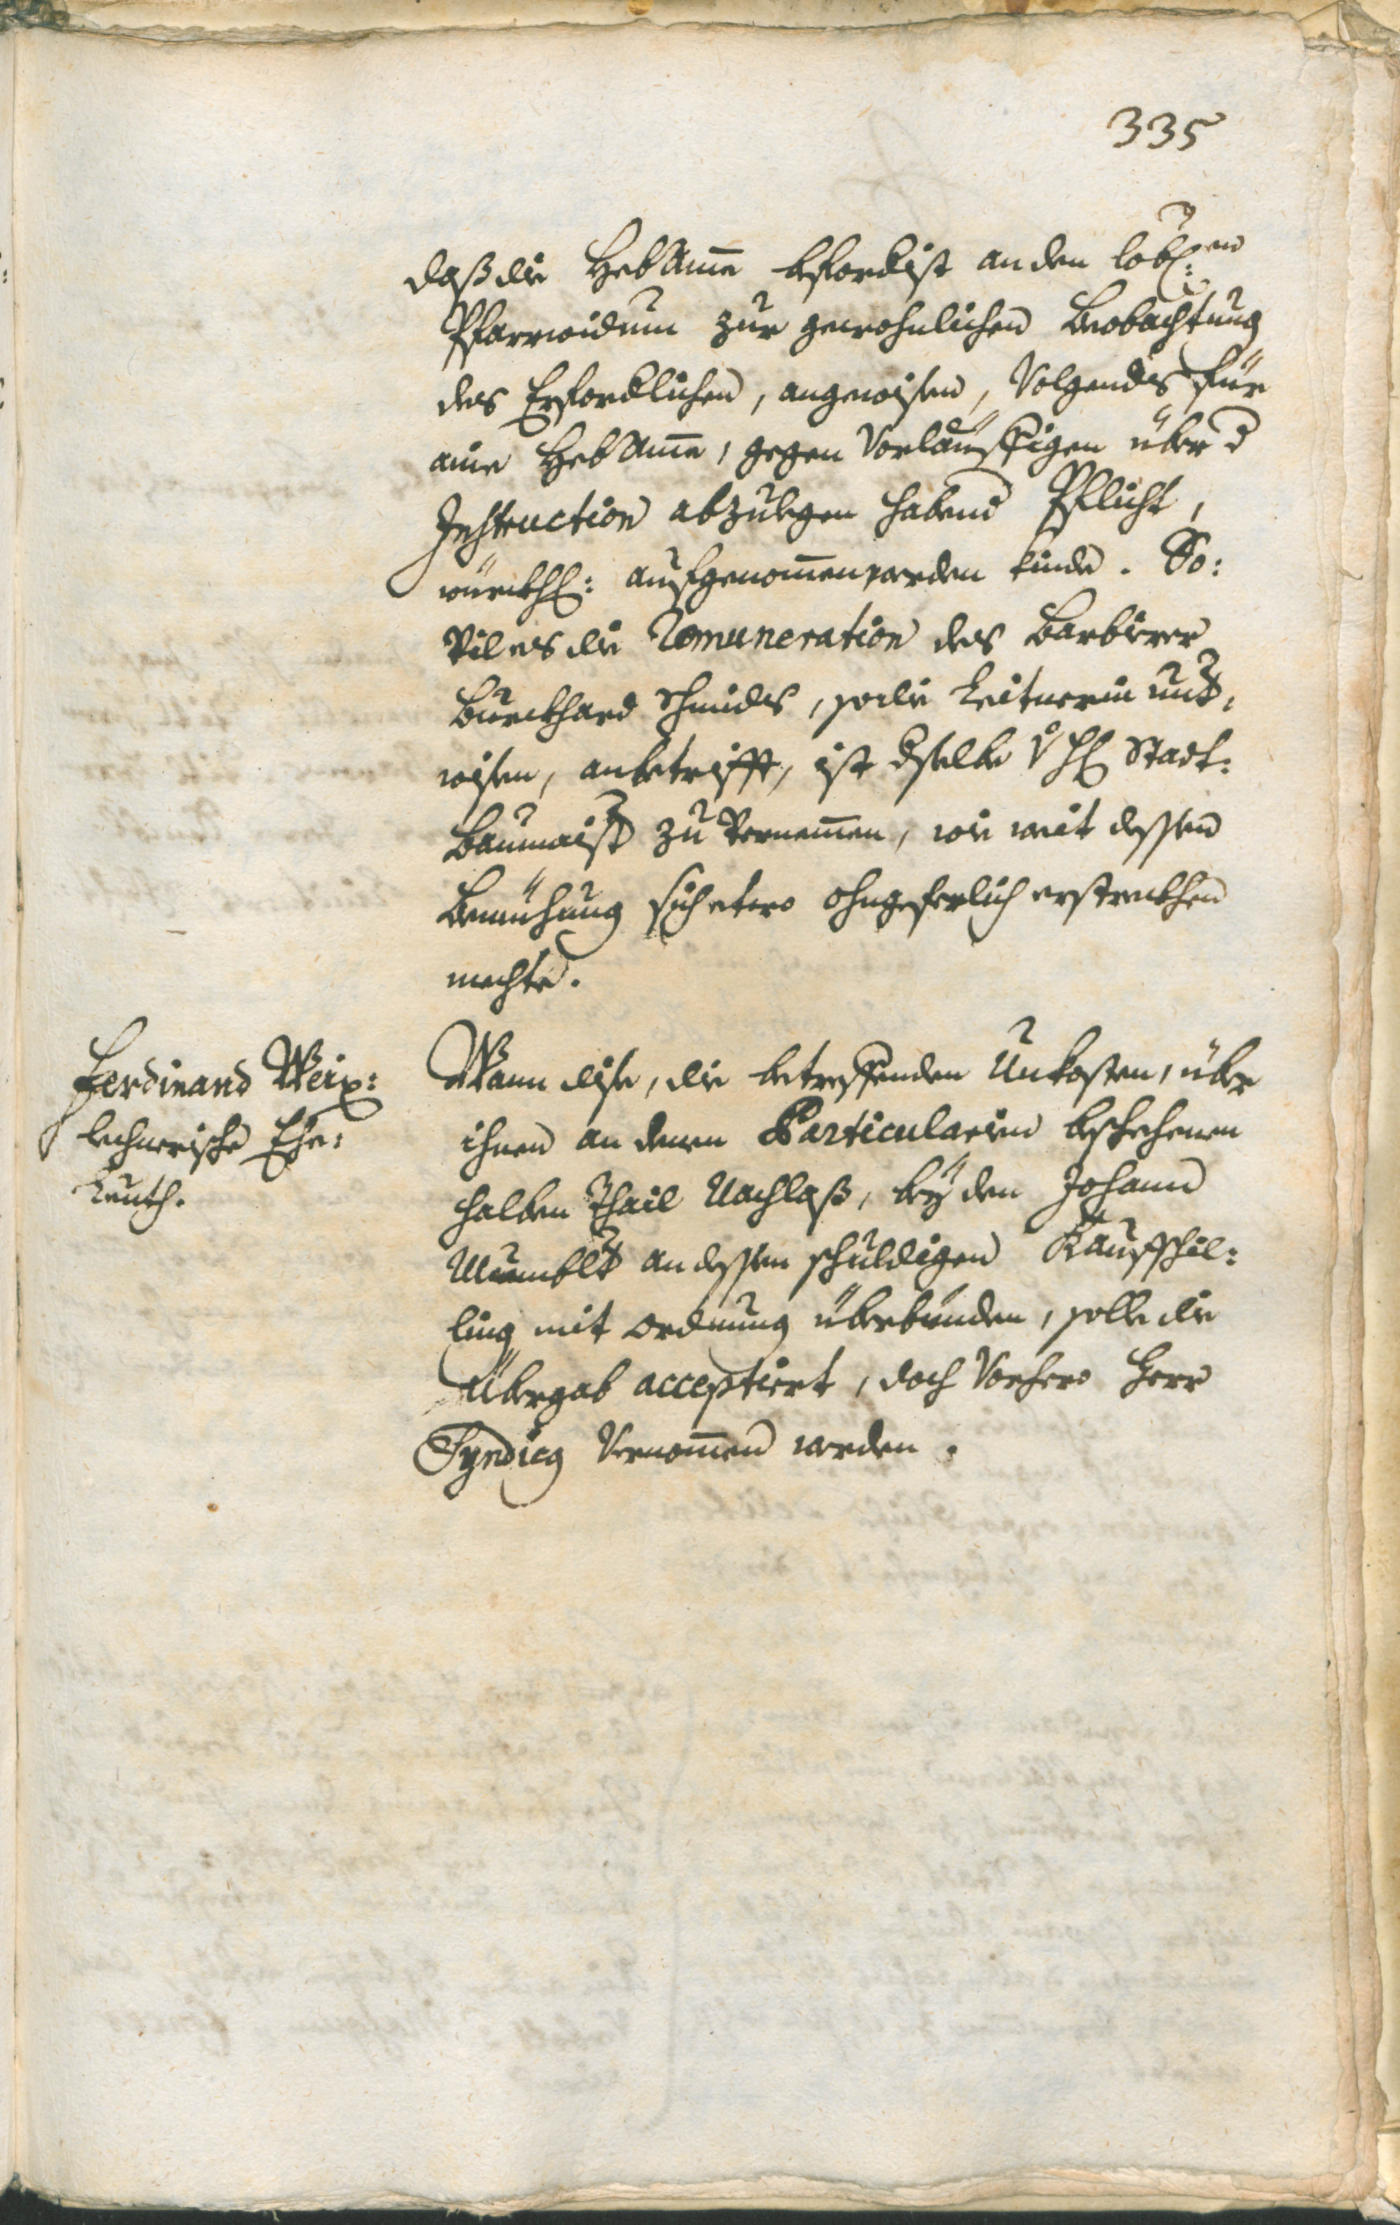 335
daß die HebAmme beforderist an den löbl:en
Pfarrwidum zur gewohnlichen Beobachtung
des Erforderlichen, angewisen, Volgendts für
aine HebAmme, gegen Vorläuffigen über d
Instruction abzulegen habend Pflicht,
würckhl: aufgenommen werden künde. So:
Vil es die Remuneration des Barbierer
Burckhard Schmidts, so die Leitnerin unter,
wisen, anbetrifft, ist derselbe Stadt:
Baumaister zu Vernemmen, wie weit dessen
Bemühung sich etwo ohngeferlich erstreckhen
mechte.
Ferdinand Weix:
lechnerische Ehe:
Leuth.
Wann dise, die betreffenden Unkosten, über
ihnen an denen Particularien beschehenen
halben Thail Nachlaß, bey den Johann
an dessen schuldigen Kaufschil:
ling mit Ordnung überbünden, solle die
Übergab acceptiert, doch Vorhero Herr
Syndicus Vernommen werden.